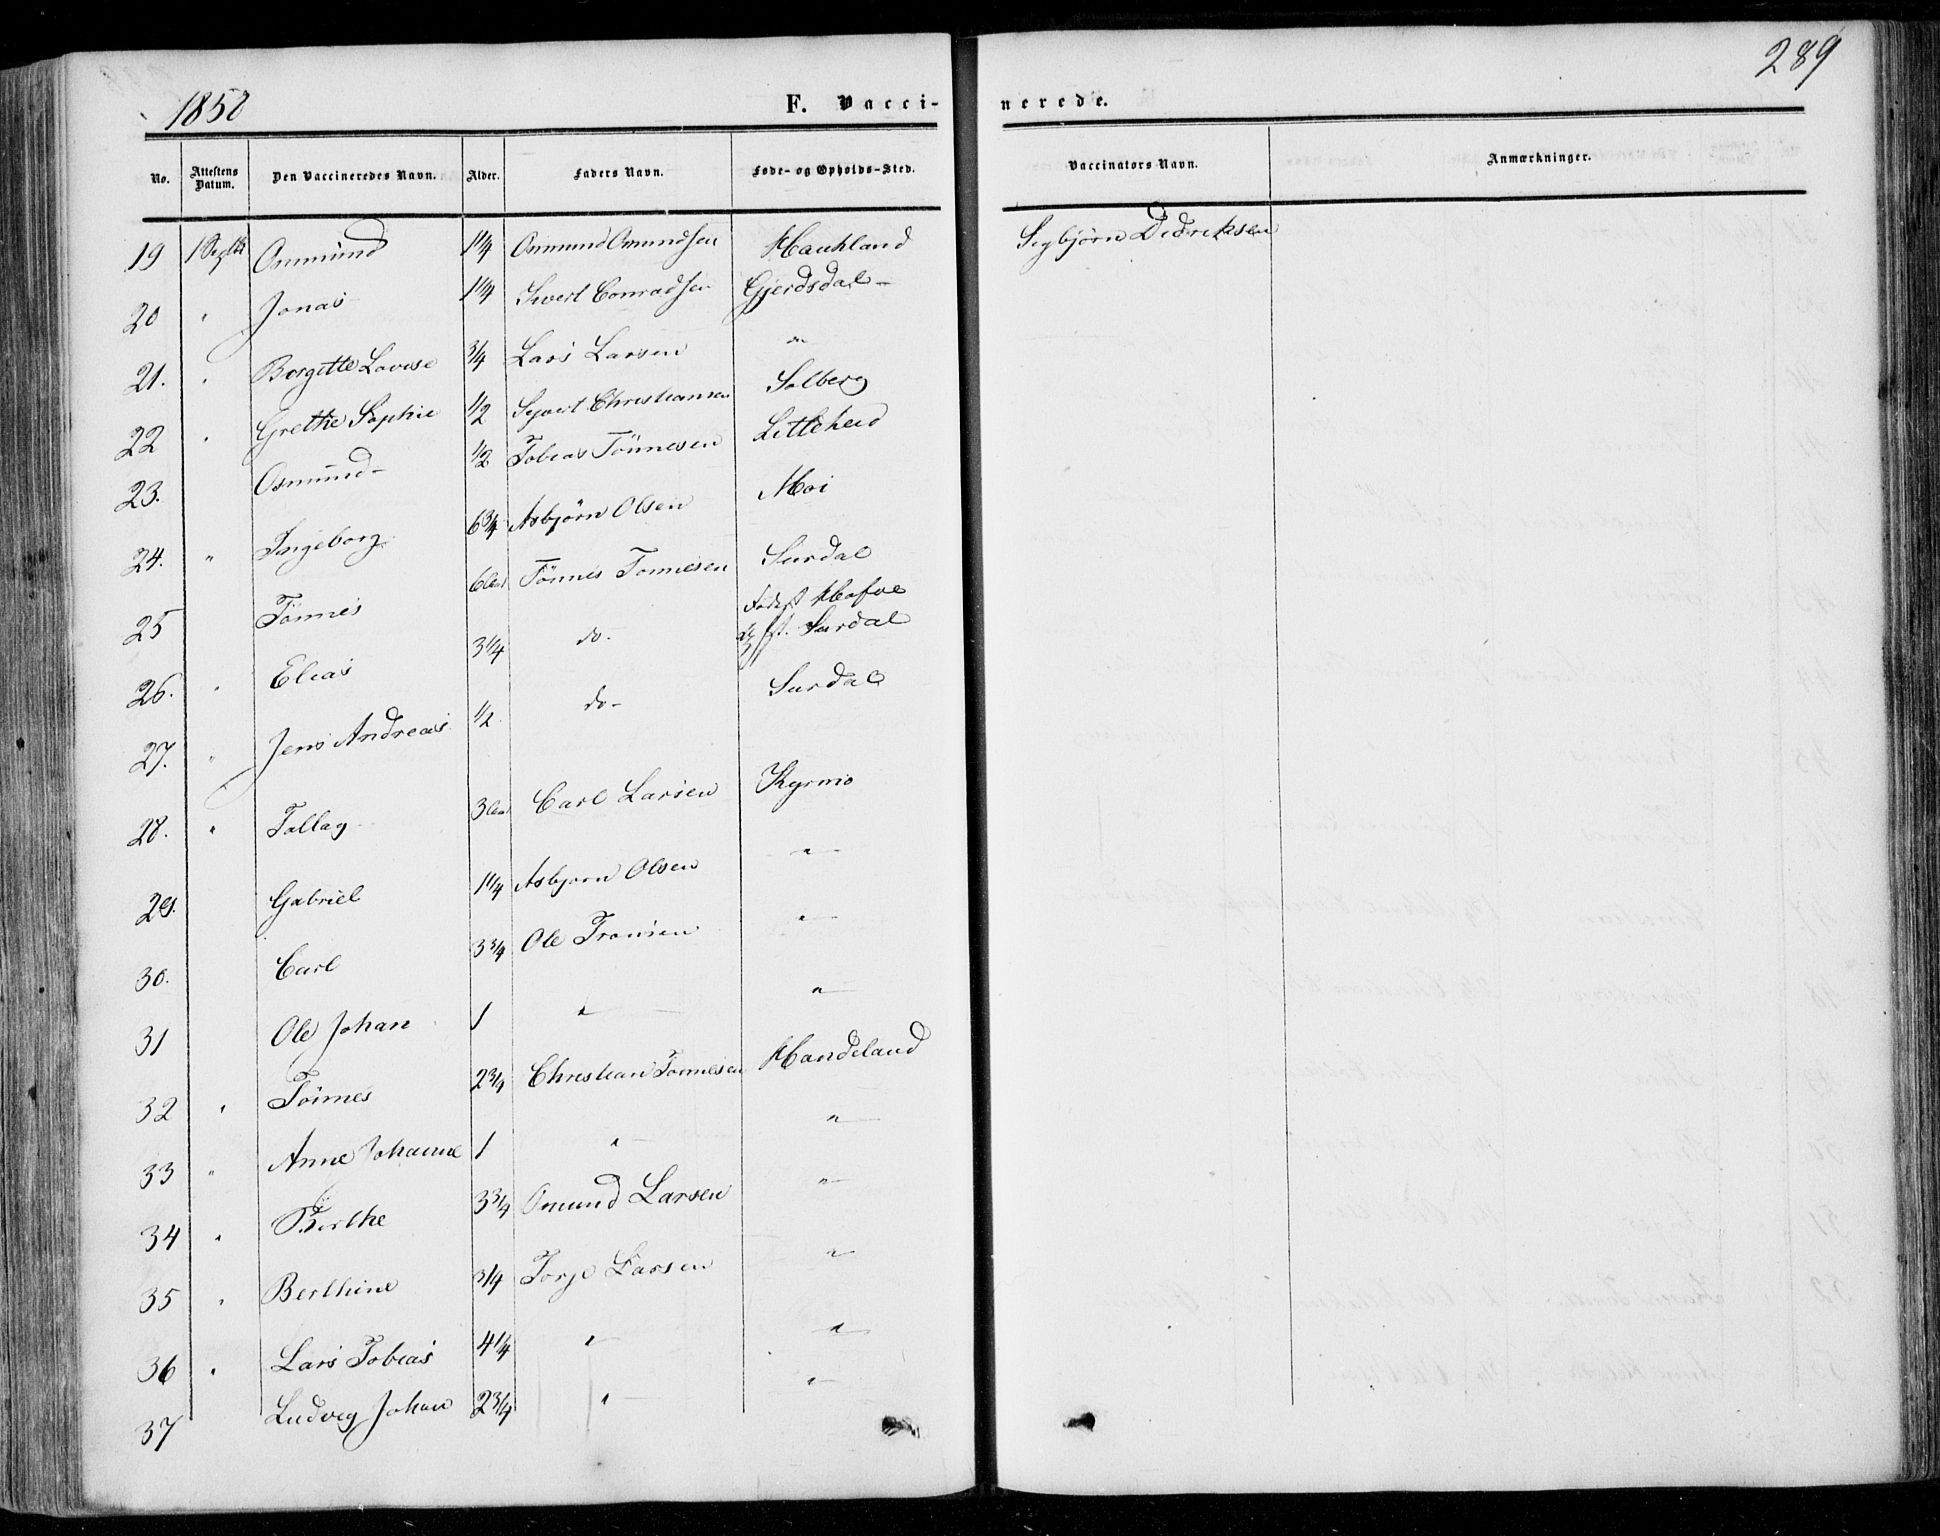 289
1850
F. Vacci-
nerede.
No. Attestens Datum. Den Vaccineredes Navn. Alder. Faders Navn. Føde- og Opholds-Sted. Vaccinators Navn. Anmærkninger.
19 Ommund 1 1/4 Ommund Omundsen Haukland Sigbjørn Didriksen
20 " Jonas 1 1/4 Sivert Conradsen Gjerdsdal -
21. " Borgitte Lovise 3/4 Lars Larsen "
22 " Grethe Sophie 1/2 Syvert Christiansen Solberg
23. Osmund - 1/2 Tobias Tönnesen Litlehed
24. " Ingeborg 6 3/4 Asbjørn Olsen Moi
25 Tönnes Tönnes Tonnesen Surdal
26. " Elias 3 1/4 do. Surdal
27. " Jens Andreas 1/2 do - Surdal
28. " Tallag 3 Carl Larsen Kyrmo
29. Gabriel 1 1/4 Asbjorn Olsen "
30. Carl 3 3/4 Ole Tronsen "
31 Ole Johan 1 " "
32 " Tönnes 2 3/4 Christian Tönnesen Handeland
33 " Anne Johanne 1 " "
34 " Berthe 3 3/4 Omund Larsen "
35 " Berthine 3/4 Torje Larsen "
36 " Lars Tobias 4 1/4 " "
37 Ludvig Johan 2 3/4 " "